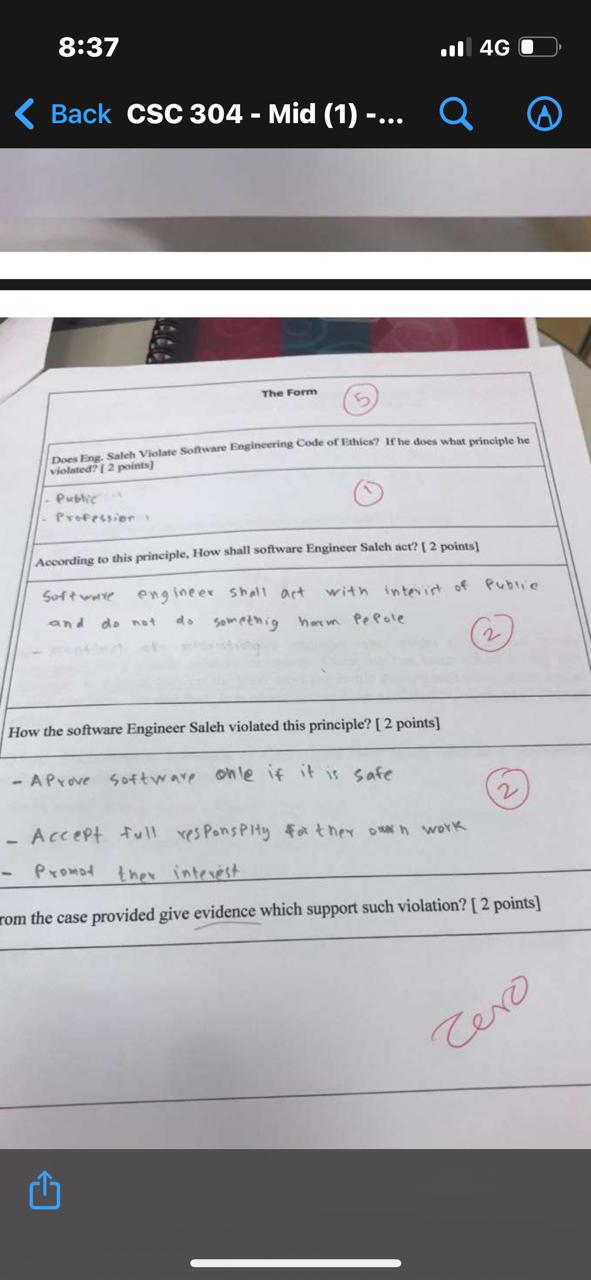 8:37
4G
Back CSC 304 - Mid (1) -...
The Form
5
Does Eng. Saleh Violate Software Engineering Code of Ethics? If he does what principle he
violated? [ 2 points]
- Public
1
- Profession
According to this principle, How shall software Engineer Saleh act? [ 2 points]
Software engineer shall act with interist of Public
and do not do somethig harm PePole
2
How the software Engineer Saleh violated this principle? [ 2 points]
- AProve software onle if it is safe
2
- Accept full responsplty for ther own work
- Promot ther interest
rom the case provided give evidence which support such violation? [ 2 points]
Zero